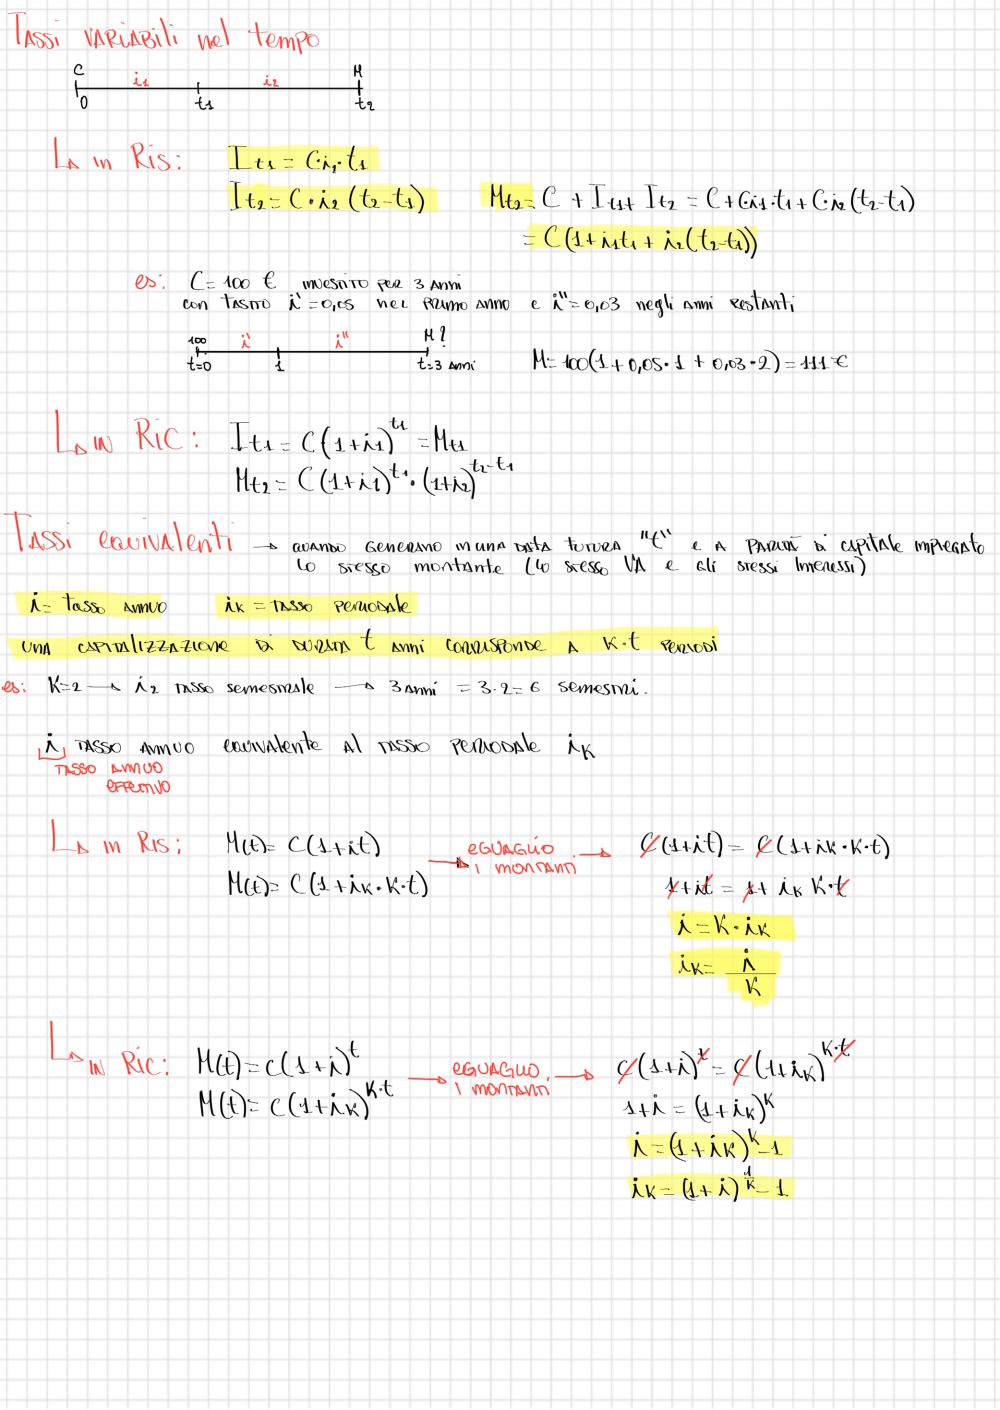 TASSI VARIABILI nel tempo
C i₁ i₂ M
0 t₁ t₂
↳ in RIS: I_t₁ = C·i₁·t₁
I_t₂ = C·i₂(t₂-t₁) M_t₂ = C + I_t₁ + I_t₂ = C + C·i₁·t₁ + C·i₂(t₂-t₁)
= C(1+i₁t₁ + i₂(t₂-t₁))
es: C = 100 € INVESTITO PER 3 ANNI
con TASSO i' = 0,05 nel PRIMO ANNO e i'' = 0,03 negli ANNI RESTANTI
100 i' i'' M?
t=0 1 t=3 ANNI M = 100(1+0,05·1 + 0,03·2) = 111 €
↳ IN RIC: I_t₁ = C(1+i₁)^t₁ = M_t₁
M_t₂ = C(1+i₁)^t₁·(1+i₂)^t₂-t₁
TASSI equivalenti → QUANDO GENERANO IN UNA DATA FUTURA "t" e A PARITÀ DI CAPITALE IMPIEGATO
LO STESSO MONTANTE (LO STESSO VA e GLI STESSI INTERESSI)
i = TASSO ANNUO i_K = TASSO PERIODALE
UNA CAPITALIZZAZIONE DI DURATA t ANNI CORRISPONDE A K·t PERIODI
es: K=2 → i₂ TASSO SEMESTRALE → 3 ANNI = 3·2 = 6 SEMESTRI.
i TASSO ANNUO equivalente Al TASSO PERIODALE i_K
TASSO ANNUO
EFFETTIVO
↳ in RIS: M(t) = C(1+it) → EGUAGLIO → C(1+it) = C(1+i_K·K·t)
M(t) = C(1+i_K·K·t) I MONTANTI 1+it = 1+i_K K·t
i = K·i_K
i_K = i/K
↳ IN RIC: M(t) = C(1+i)^t → EGUAGLIO → C(1+i)^t = C(1+i_K)^K·t
M(t) = C(1+i_K)^K·t I MONTANTI 1+i = (1+i_K)^K
i = (1+i_K)^K - 1
i_K = (1+i)^1/K - 1